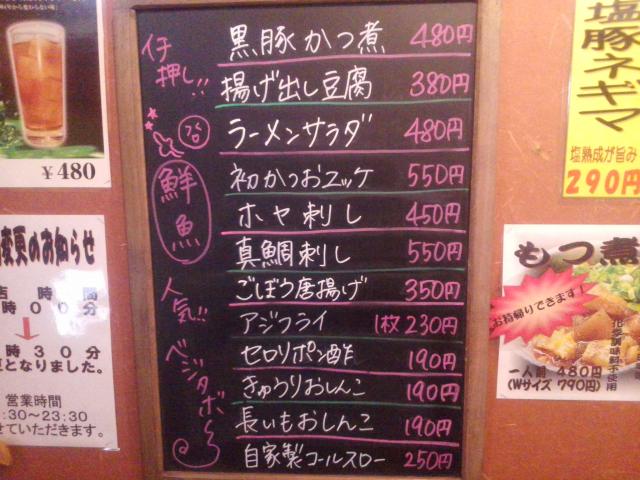 ¥480
変更のお知らせ
時間
時00分
時30分
となりました。
営業時間
:30〜23:30
せていただきます。
イチ押し!!
鮮魚
人気!!ベジタボ〜
黒豚かつ煮 480円
揚げ出し豆腐 380円
ラーメンサラダ 480円
初かつおユッケ 550円
ホヤ刺し 450円
真鯛刺し 550円
ごぼう唐揚げ 350円
アジフライ 1枚230円
セロリポン酢 190円
きゅうりおしんこ 190円
長いもおしんこ 190円
自家製コールスロー 250円
塩豚ネギマ
塩熟成が旨み
290円
もつ煮
お持帰りできます!
化学調味料不使用
一人前 480円
(Wサイズ 790円)